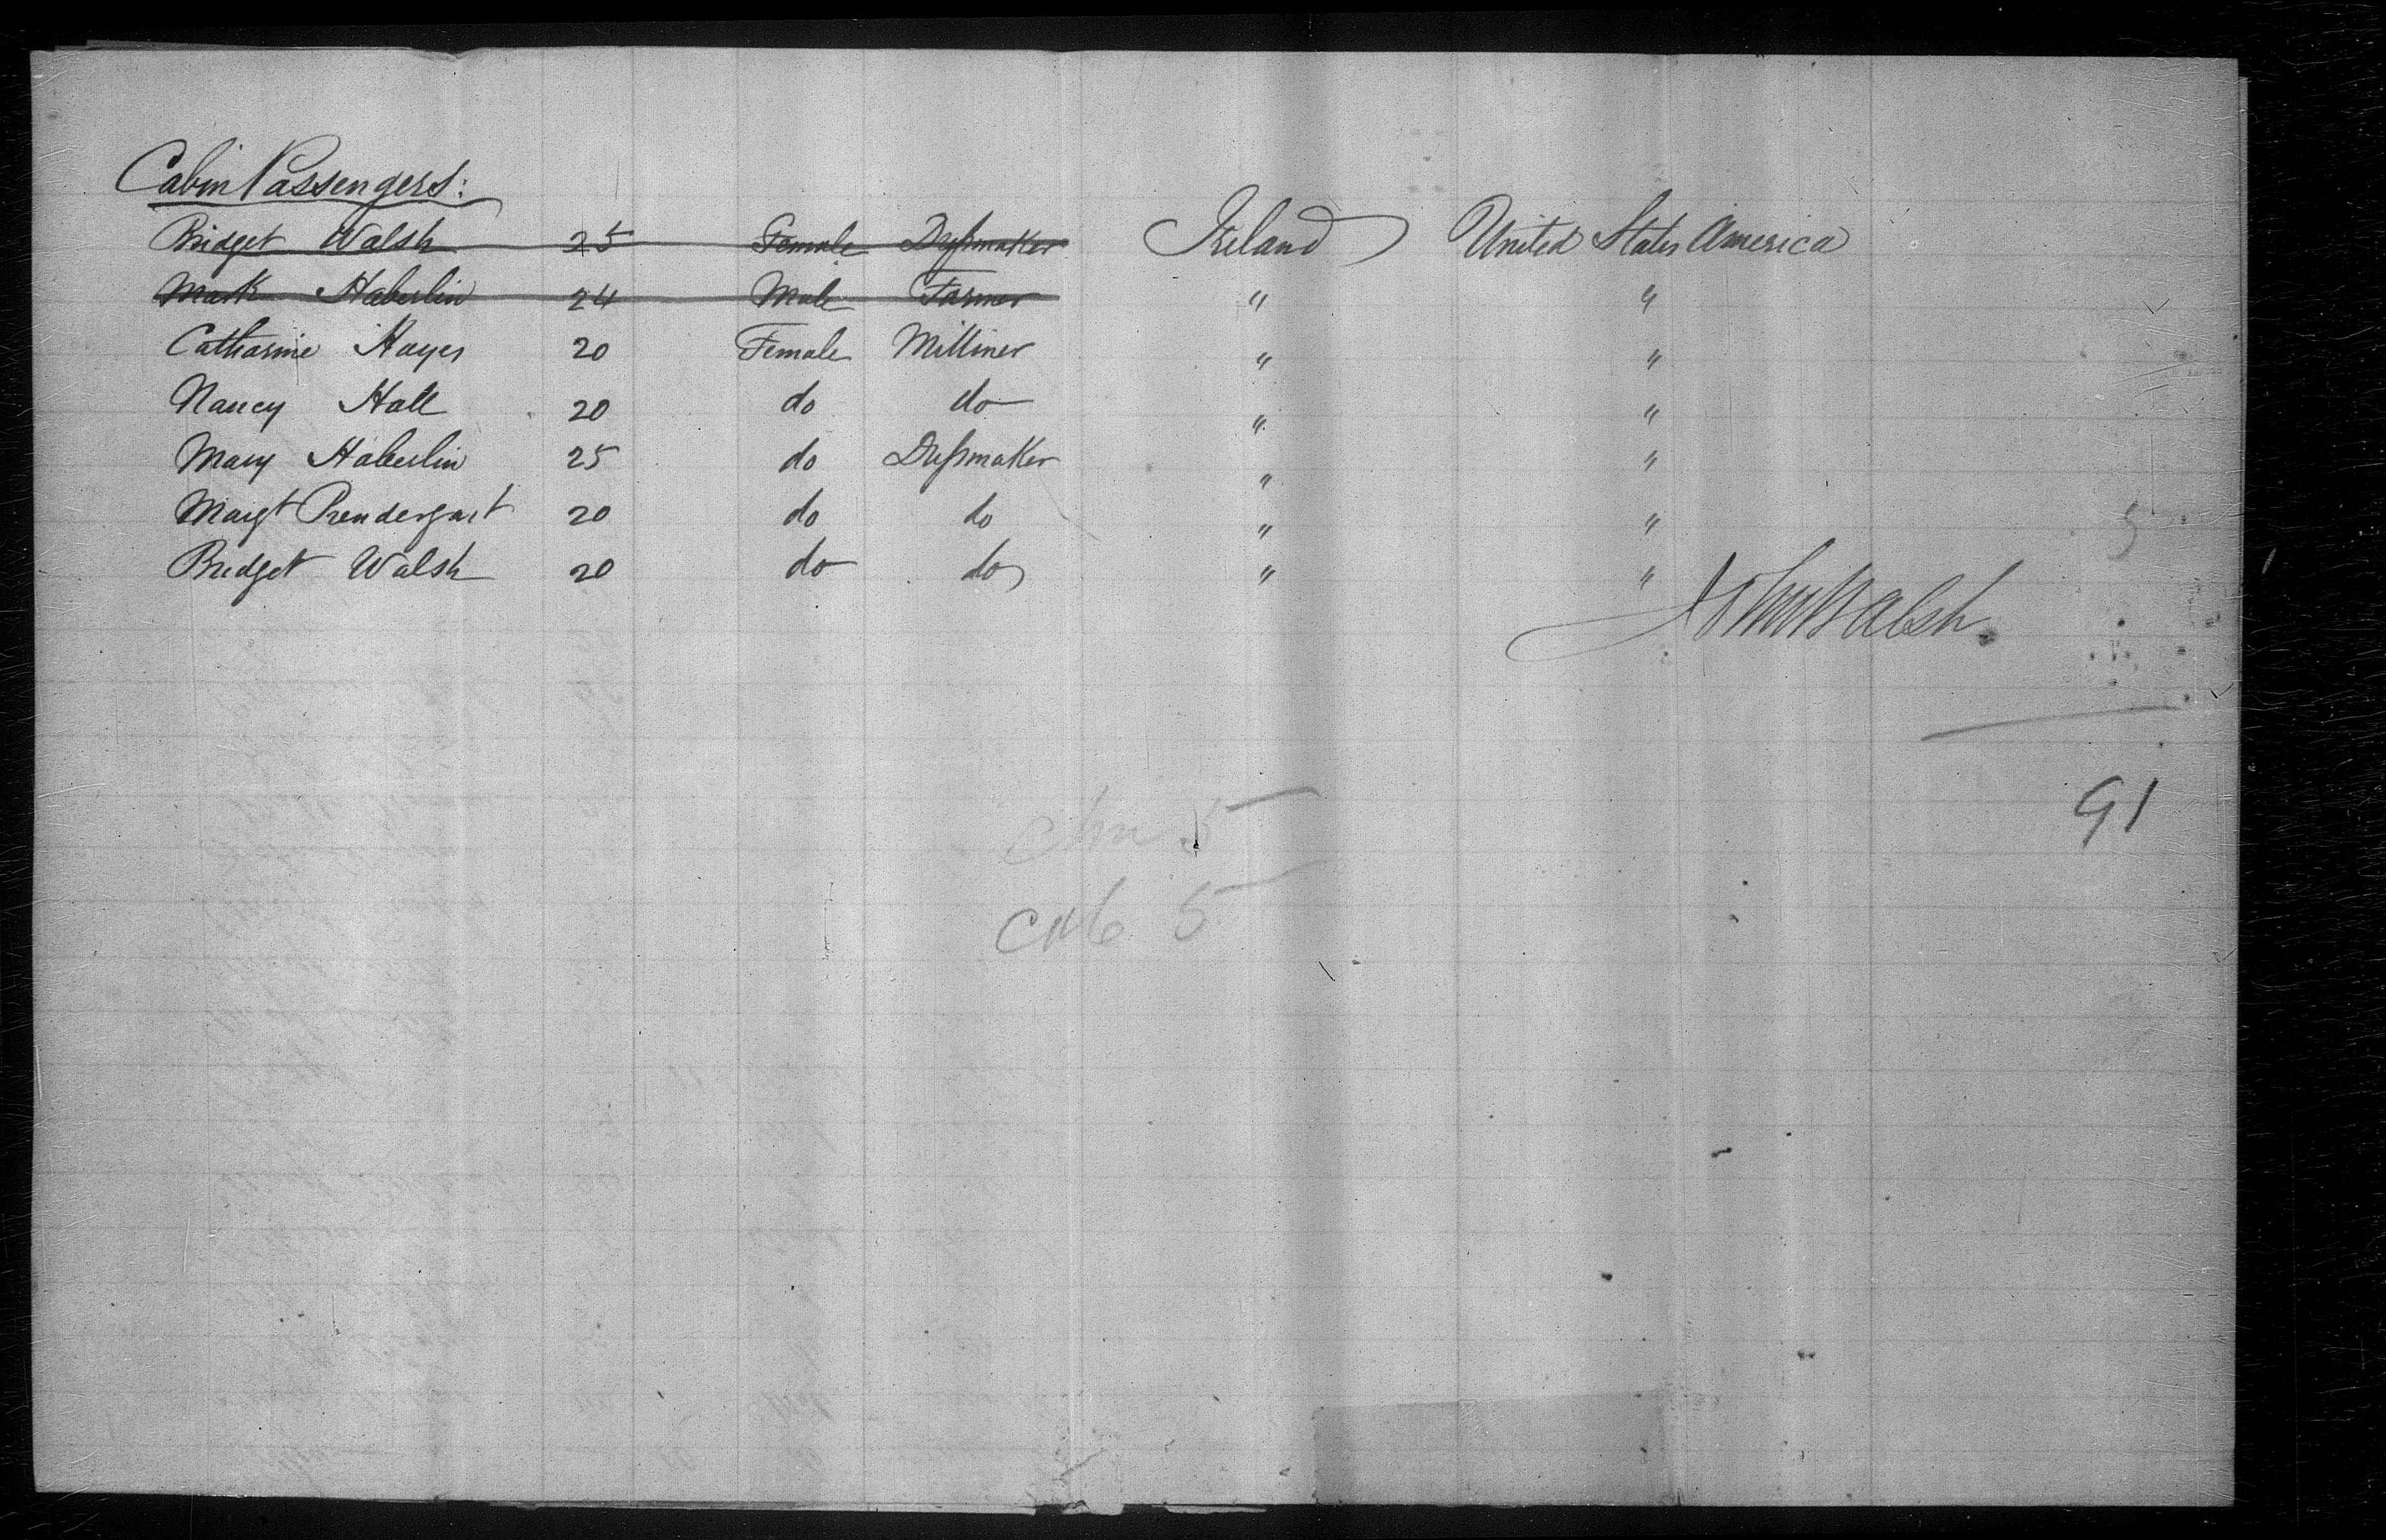 Cabin Passengers:
Bridget Walsh 25 Female Dressmaker Ireland United States America
Mark Haberlin 24 Male Farmer " "
Catharine Hayes 20 Female Milliner " "
Nancy Hall 20 do do " "
Mary Haberlin 25 do Dressmaker " "
Margt Prendergast 20 do do " "
Bridget Walsh 20 do do " "
5
John Walsh
91
5
5